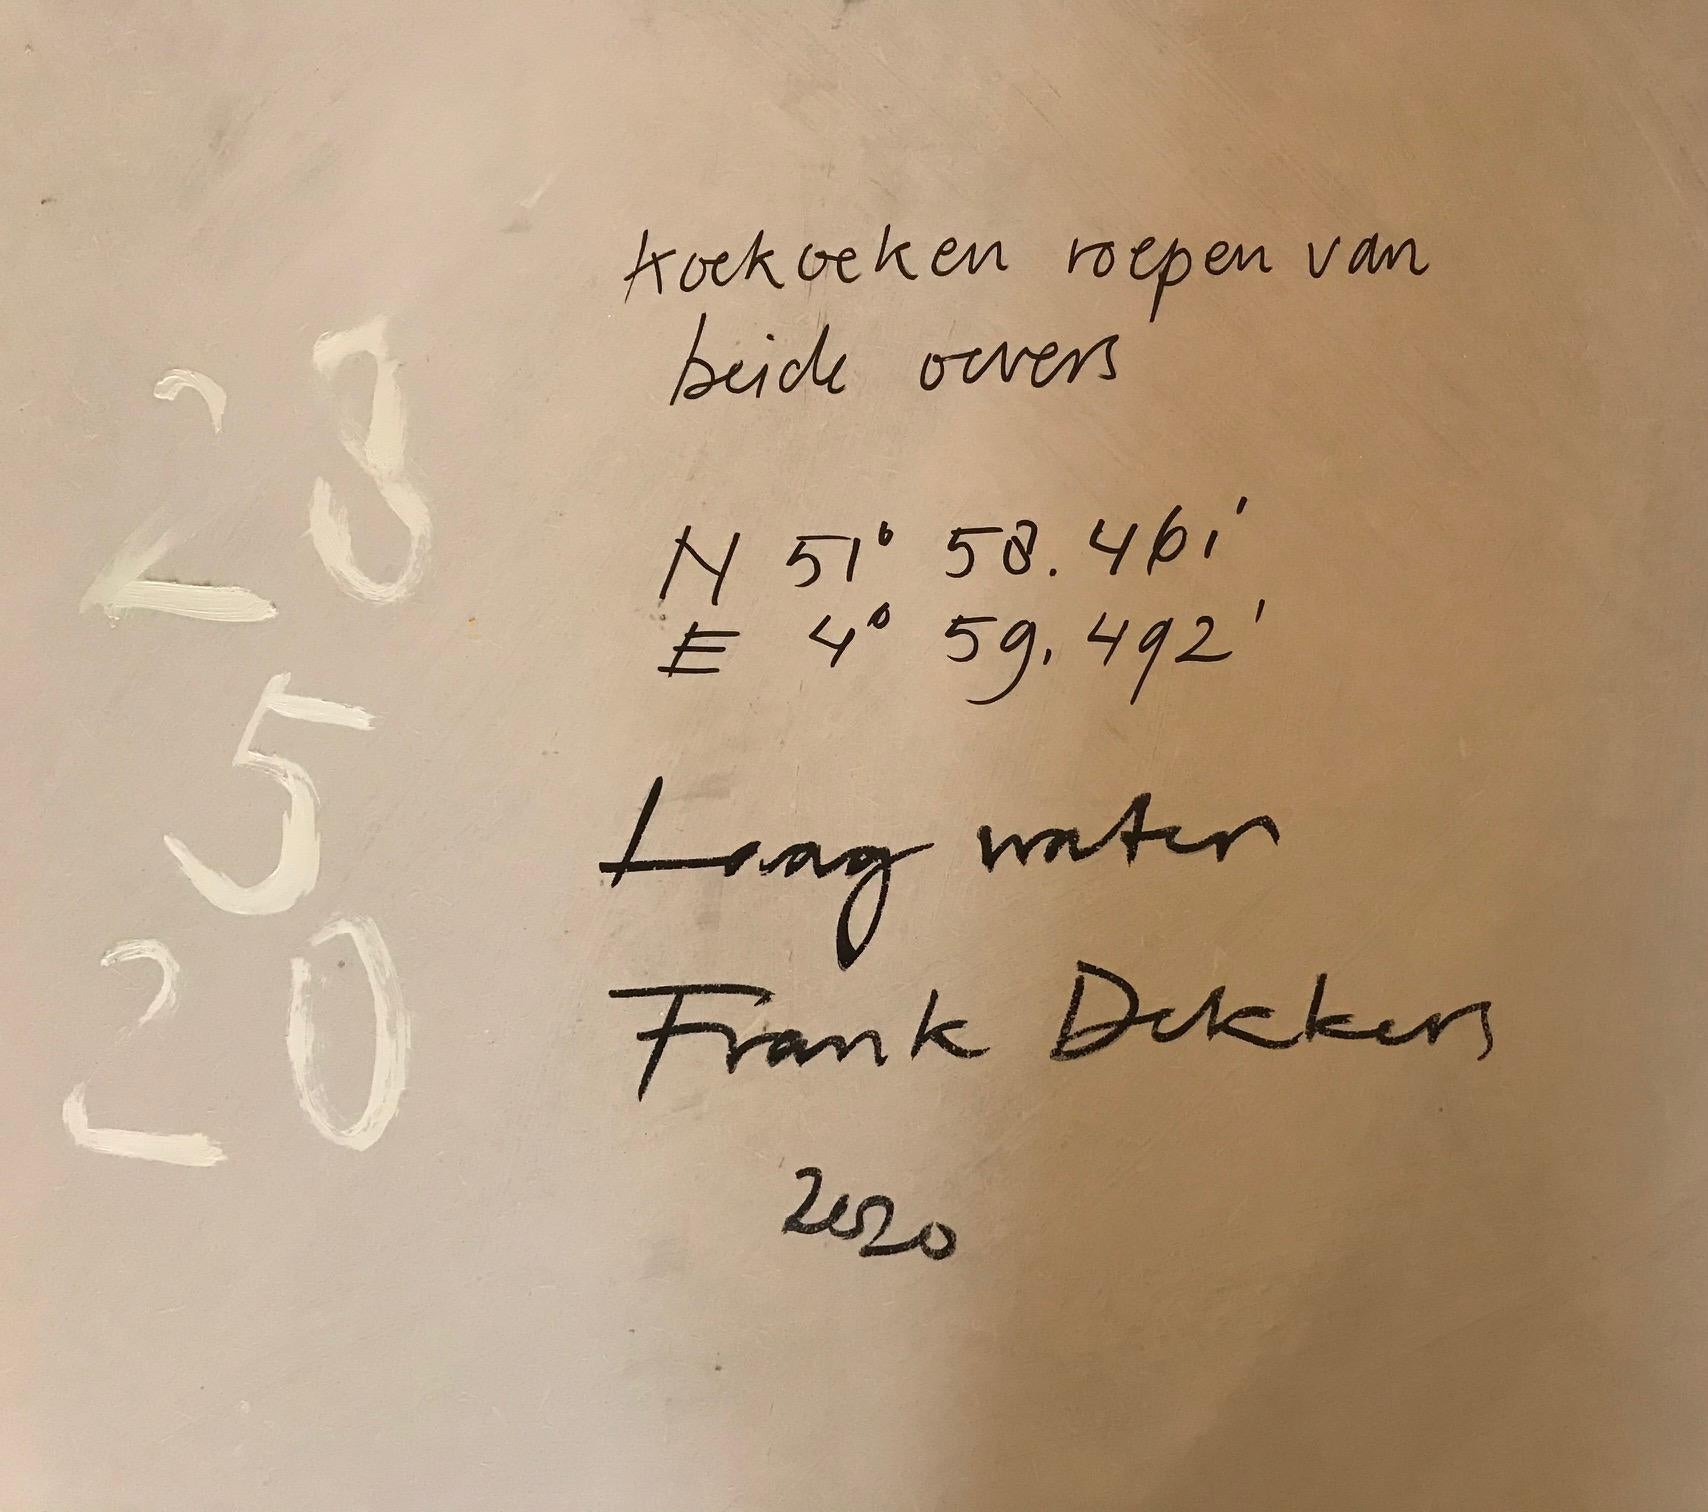 Koekoeken roepen van
beide oevers
N 51° 58.461'
E 4° 59.492'
Laag water
Frank Dekkers
2020
28
5
20